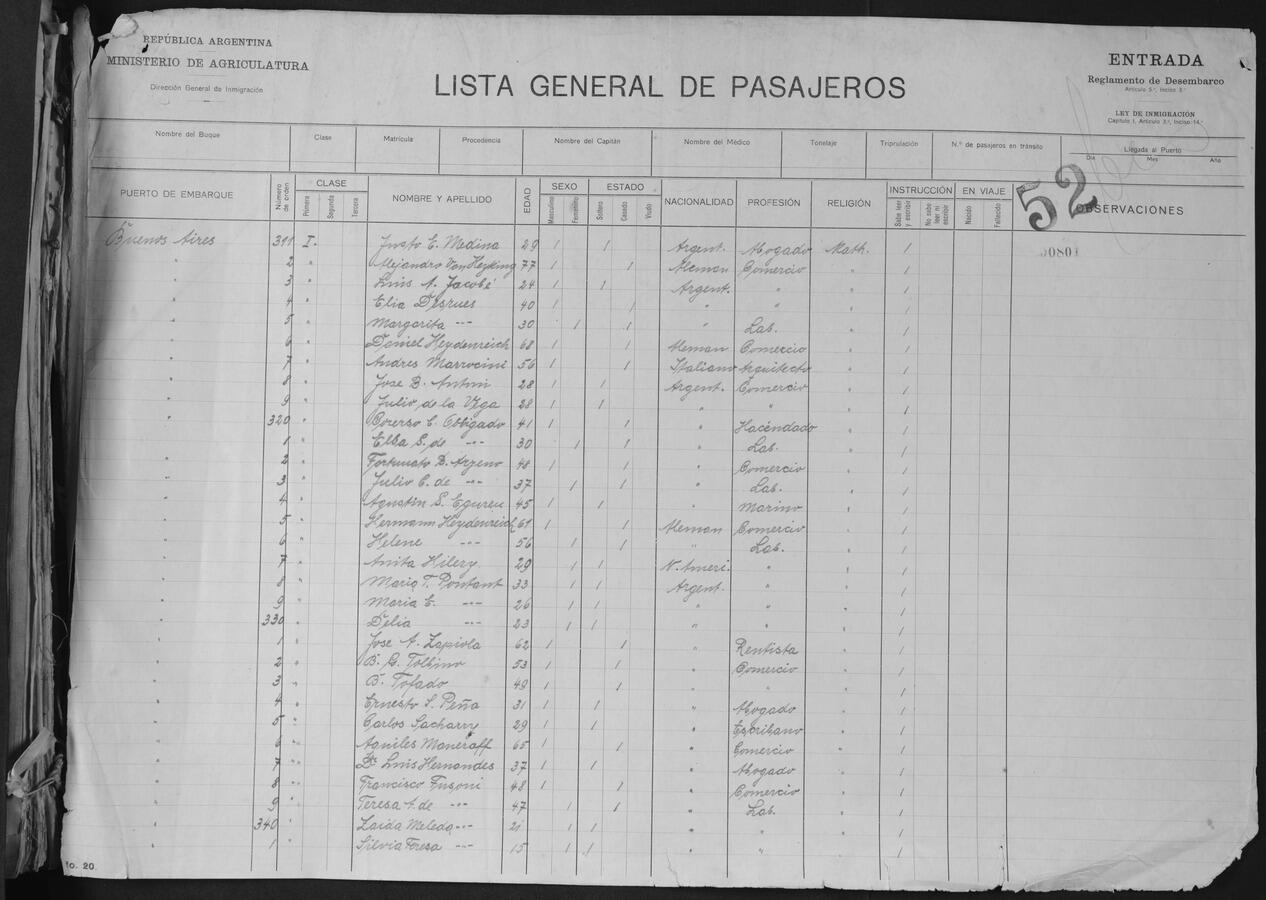 REPÚBLICA ARGENTINA
MINISTERIO DE AGRICULTURA
Dirección General de Inmigración
LISTA GENERAL DE PASAJEROS
ENTRADA
Reglamento de Desembarco
Artículo 5º, Inciso 3º
LEY DE INMIGRACIÓN
Capítulo I, Artículo 3º, Inciso 14º
Nombre del Buque Clase Matrícula Procedencia Nombre del Capitán Nombre del Médico Tonelaje Tripulación N.º de pasajeros en tránsito Llegada al Puerto
Día Mes Año
52
PUERTO DE EMBARQUE Número de orden CLASE NOMBRE Y APELLIDO EDAD SEXO ESTADO NACIONALIDAD PROFESIÓN RELIGIÓN INSTRUCCIÓN EN VIAJE OBSERVACIONES
Primera Segunda Tercera Masculino Femenino Soltero Casado Viudo Sabe leer y escribir No sabe leer ni escribir Nacido Fallecido
Buenos Aires 311 I. Justo E. Medina 29 / / Argent. Abogado Math. / 0801
" 2 " Alejandro Von Heyking 77 / / Aleman Comercio " /
" 3 " Luis A. Jacobé 24 / / Argent. " " /
" 4 " Elia Desrues 40 / / " " " /
" 5 " Margarita -- 30 / / " Lab. " /
" 6 " Daniel Heydenreich 68 / / Aleman Comercio " /
" 7 " Andres Marrocini 56 / / Italiano Arquitecto " /
" 8 " Jose B. Antini 28 / / Argent. Comercio " /
" 9 " Julio de la Vega 28 / / " " " /
" 320 " E. Obligado 41 / / " Hacendado " /
" 1 " Elba S. de -- 30 / / " Lab. " /
" 2 " Fortunato D. Arzeno 48 / / " Comercio " /
" 3 " Julio C. de -- 37 / / " Lab. " /
" 4 " Agustin S. Eguren 45 / / " Marino " /
" 5 " Hermann Heydenreich 61 / / Aleman Comercio " /
" 6 " Helene -- 56 / / " Lab. " /
" 7 " Anita Hilery 29 / / N. Ameri. " " /
" 8 " Maria T. Pontant 33 / / Argent. " " /
" 9 " Maria E. -- 26 / / " " " /
" 330 " Delia -- 23 / / " " " /
" 1 " Jose A. Zapiola 62 / / " Rentista " /
" 2 " B. G. Tolbino 53 / / " Comercio " /
" 3 " B. Tofado 49 / / " " " /
" 4 " Ernesto S. Peña 31 / / " Abogado " /
" 5 " Carlos Sacharry 29 / / " Escribano " /
" 6 " Aquiles Maneraff 65 / / " Comercio " /
" 7 " Dr. Luis Hernandes 37 / / " Abogado " /
" 8 " Francisco Fusoni 48 / / " Comercio " /
" 9 " Teresa A. de -- 47 / / " Lab. " /
" 340 " Zaida Meleda -- 21 / / " " " /
" 1 " Silvia Teresa -- 15 / / " " " /
o. 20